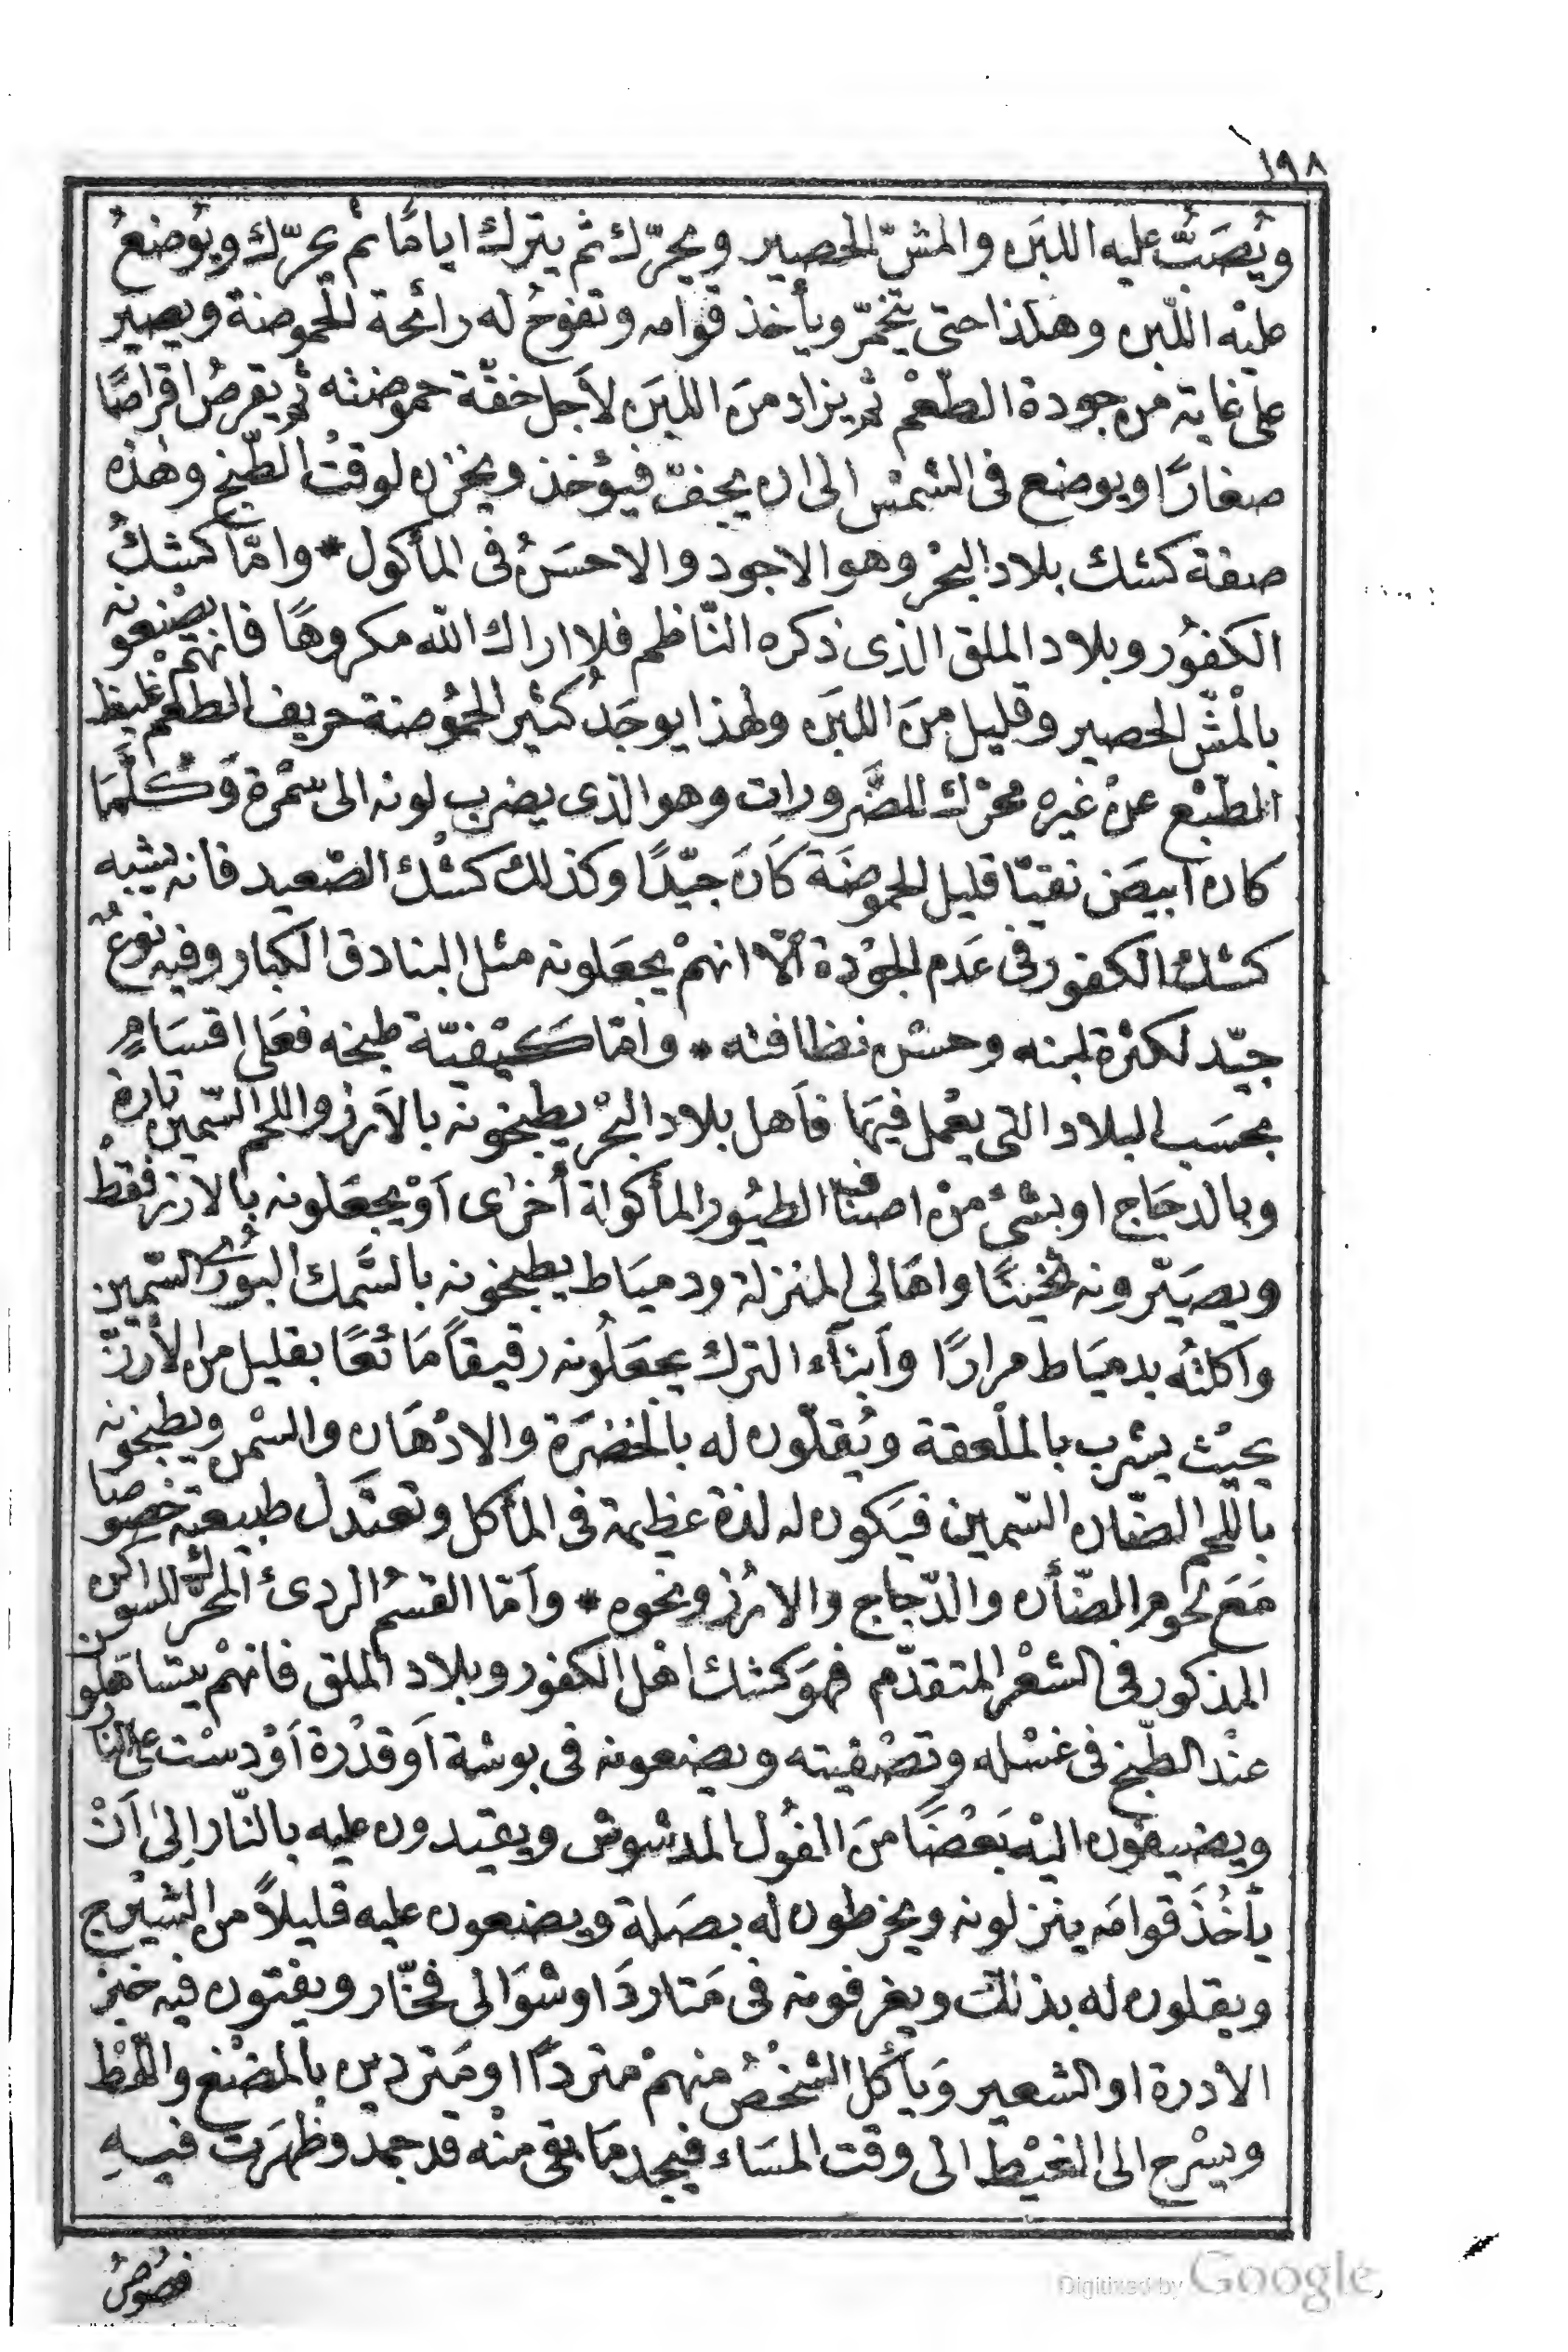 ١٩٨
ويُصَبُّ عليه اللبَن والمشّ الحصير ويحرّك ثم يترك اياما ثم يحرّك ويُوضَعُ
عليْه اللّبن وهكذا حتى يتخمّر ويأخذ قوامه وتفوحُ له رائحة للحموضة ويصير
على غاية من جودة الطّعْم ثم يزاد منَ اللبَن لأجل خفّة حموضته ثم يقرصُ اقراصًا
صغارًا ويوضع فى الشمْس الى ان يجفّ فيؤخذ ويخزن لوقت الطّبخ وهذه
صفة كشك بلاد البحْر وهو الاجود والاحسَنُ فى المأكول * وامّا كشكُ
الكفُور وبلاد الملق الذى ذكره النّاظم فلا اراك الله مكروهًا فانهم يصْنعونه
بالْمشّ الحصير وقليل منَ اللبَن ولهذا يوجَدُ كثير الحمُوضة حريف الطعم غليظ
الطّبْع عنْ غيره محرّك للضَّرورات وهو الذى يضرب لونه الى سُمْرة وَكُلَّمَا
كان أبيضَ نقيّا قليل الحموضَة كَانَ جيّدًا وكذلك كشْك الصّعيد فانه يشبه
كشك الكفور فى عَدم الجوْدة الّا انهمْ يجعَلونه مثل البنادق الكبار وفيه نوعٌ
جيّد لكثرة لبنه وحسْن نظافته * وأمّا كَيْفيّة طبخه فعَلى اقسَامٍ
بحسَب البلاد التى يعْمل فيهَا فأهل بلاد البحْر يطبخونه بالأرز واللحم السّمين تارة
وبالدجَاج او بشىْء منْ اصناف الطيُور المأكولة أخرٰى أوْ يجعَلونه بالارز فقطْ
ويصيَّرونه ثخينًا واهَالى المنزلة ودميَاط يطبخونه بالسَّمك البُورى السّمين
وأكلتُه بدميَاط مرارًا وأبنآء الترك يجعَلُونه رقيقًا مَائعًا بقليل من الأرزّ
بحيْث يشرب بالملْعقة ويُقلّون له بالخضرَة والادْهَان والسّمْن ويطبخونه
باللّحم الضّان السّمين فيَكون له لذة عظيمة فى المأكل وتعتَدل طبيعته خصوصا
مَعَ لحوم الضّأن والدّجاج والارُز ونحوه * وأمّا القسمُ الردىء المحرّك للسواكن
المذكور فى الشعْر المتقدّم فهوَ كشك اهْل الكفور وبلاد الملق فانهمْ يتساهَلون
عنْد الطّبخ فى غسْله وتصْفيته ويضعونه فى بوشة أوقدْرة أوْدسْت على النار
ويضيفون اليْه بَعْضًا منَ الفُول المدشوش ويقيدون عليه بالنّار إلىٰ أنْ
يأخُذَ قوامَه ينزلونه ويخرطون له بصَلة ويضعون عليه قليلاً من الشيْرج
ويقلون له بذلك ويغرفونه فى مَتاردَ اوشوَالى فخّار ويفتون فيه خبز
الادرة او الشعير وَيأكل الشخْصُ منهمْ متردًا اومَتردين بالمضْغ واللّهْط
ويسْرح الى الغيْط الى وقت المسَاء فيجد مَا بقى منْه قد جمدَ وظهَرَت فيهِ
فصُوصٌ
Digitized by Google